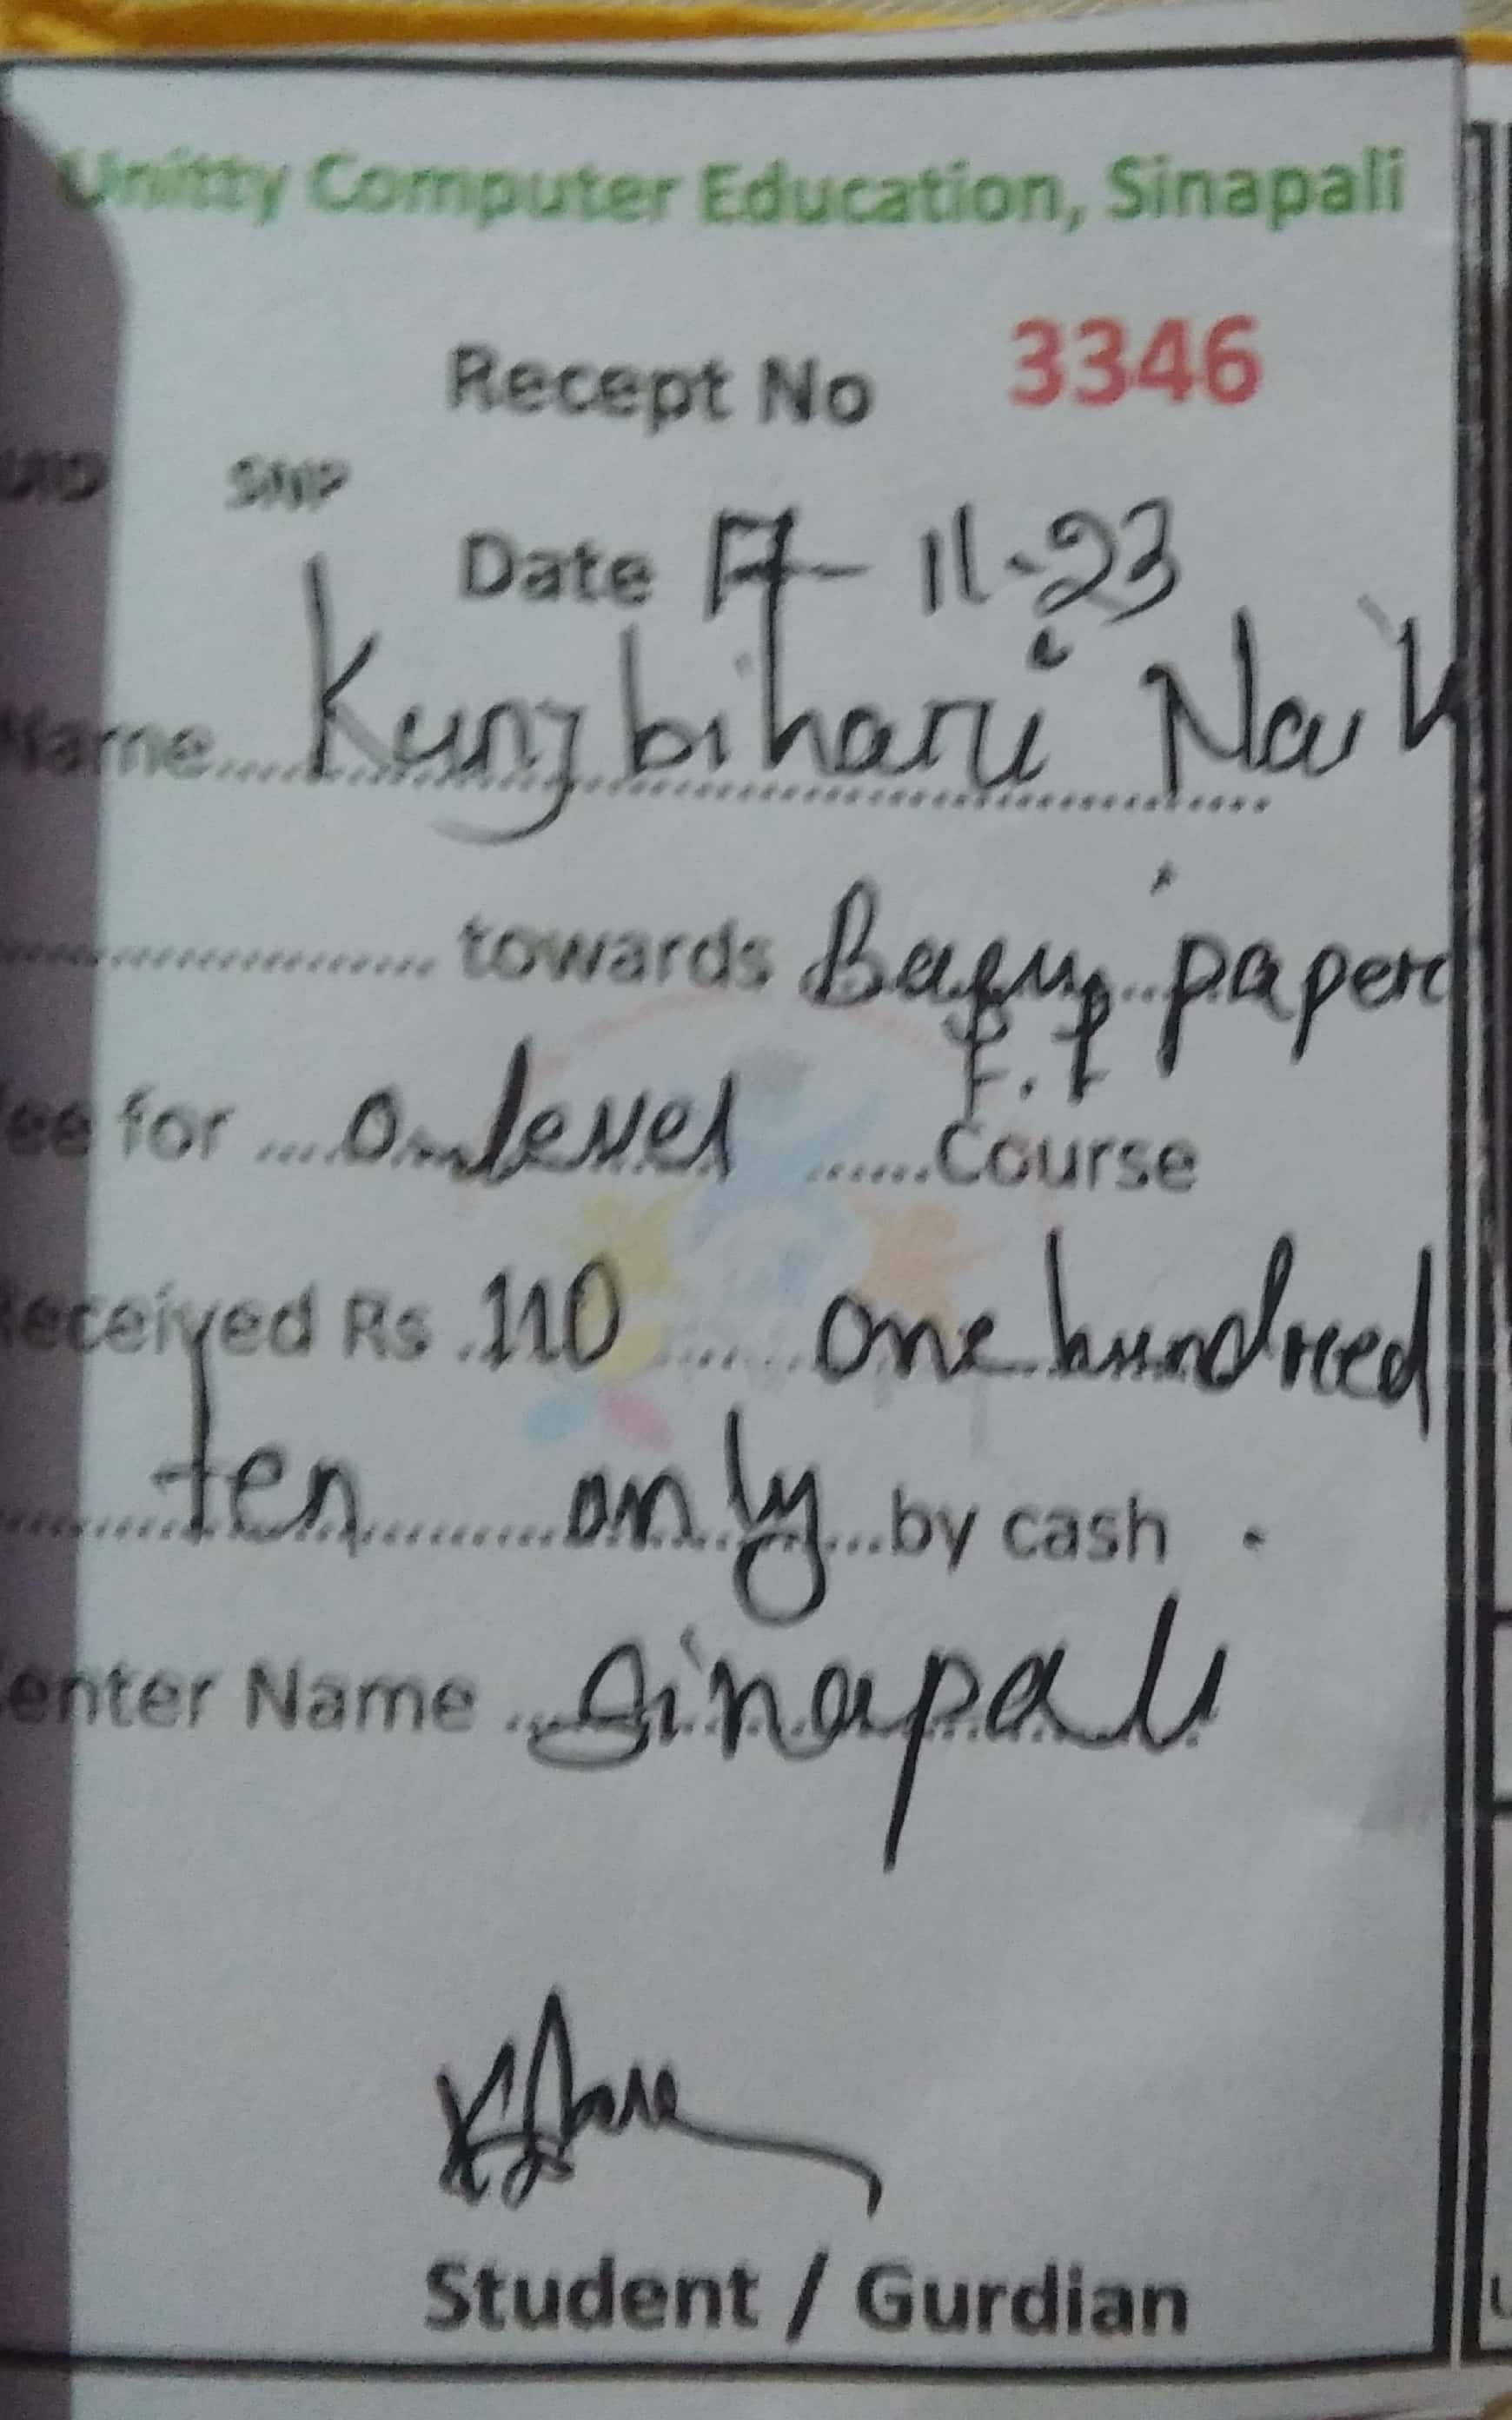 Unitty Computer Education, Sinapali
Recept No 3346
UID SNP
Date 17-11-23
Name Kunjbihari Naik
towards paper
F.F
ee for O-level Course
Received Rs 110 one hundreed
ten only by cash
enter Name Sinapali
Student / Gurdian